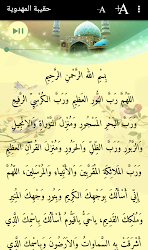 حقيبة المهدوية
A- A+
بِسْمِ اللهِ الرَّحْمنِ الرَّحِيْمِ
اَللّهُمَّ رَبَّ النُّورِ الْعَظِيمِ وَرَبَّ الْكُرْسِيِّ الرَّفِيعِ
وَرَبَّ الْبَحْرِ الْمَسْجُورِ وَمُنْزِلَ التَّوْراةِ وَالْاِنْجِيلِ
وَالزَّبُورِ وَرَبَّ الظِّلِّ وَالْحَرُورِ وَمُنْزِلَ الْقُرْآنِ الْعَظِيمِ
وَرَبَّ الْمَلائِكَةِ الْمُقَرَّبِينَ وَالْاَنْبِيَاءِ وَالْمُرْسَلِينَ، اَللّهُمَّ
اِنِّي اَسْأَلُكَ بِوَجْهِكَ الْكَرِيمِ وَبِنُورِ وَجْهِكَ الْمُنِيرِ
وَمُلْكِكَ الْقَدِيمِ، يا حَيُّ يا قَيُّومُ اَسْأَلُكَ بِاسْمِكَ الَّذِي
اَشْرَقَتْ بِهِ السَّماواتُ وَالْاَرَضُونَ وَبِاسْمِكَ الَّذِي